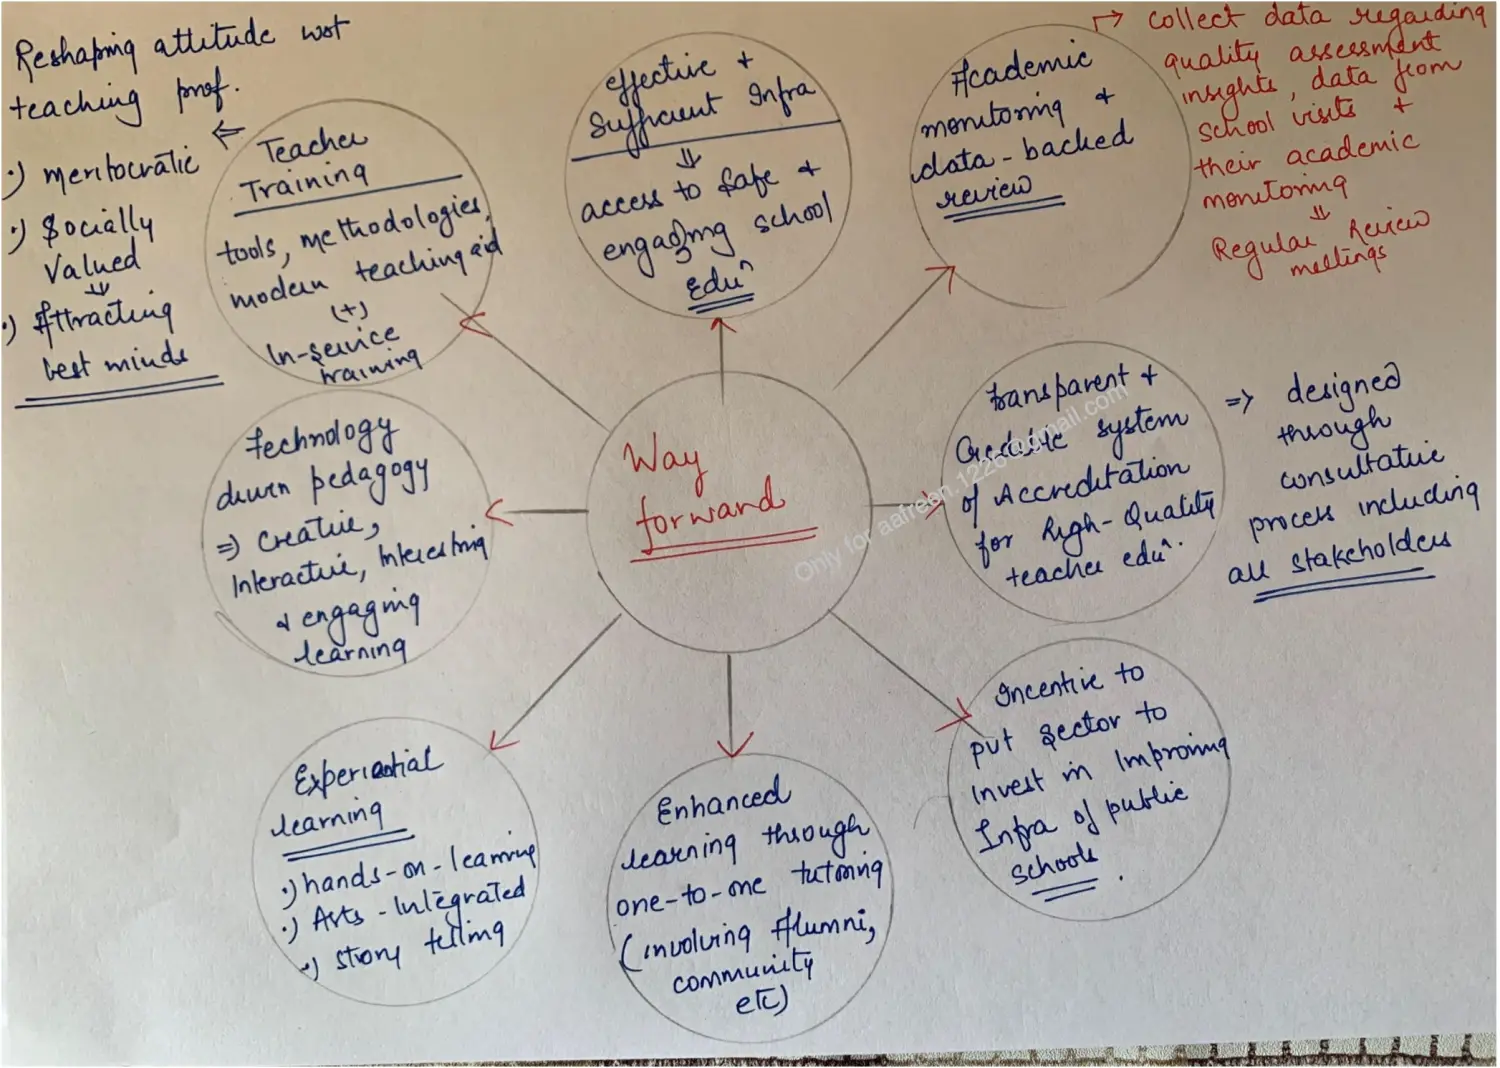 Reshaping attitude wrt
teaching prof.
·) meritocratic
·) Socially
Valued
⇓
·) Attracting
best minds
⇐
Teacher
Training
tools, methodologies,
modern teaching aid
(+)
In-service
training
effective +
Sufficient Infra
⇓
access to safe +
engaging school
Eduⁿ
Academic
monitoring +
data-backed
review
→ collect data regarding
quality assessment
insights, data from
school visits +
their academic
monitoring
⇓
Regular Review
meetings
Technology
driven pedagogy
⇒ Creative,
Interactive, Interesting
& engaging
learning
Way
forward
Transparent +
Credible system
of Accreditation
for High-Quality
teacher eduⁿ.
⇒ designed
through
consultative
process including
all stakeholders
Experiential
learning
·) hands-on-learning
·) Arts-Integrated
·) story telling
Enhanced
learning through
one-to-one tutoring
(involving Alumni,
community
etc)
Incentive to
put sector to
invest in Improving
Infra of public
schools.
Only for aafreen.1226@gmail.com